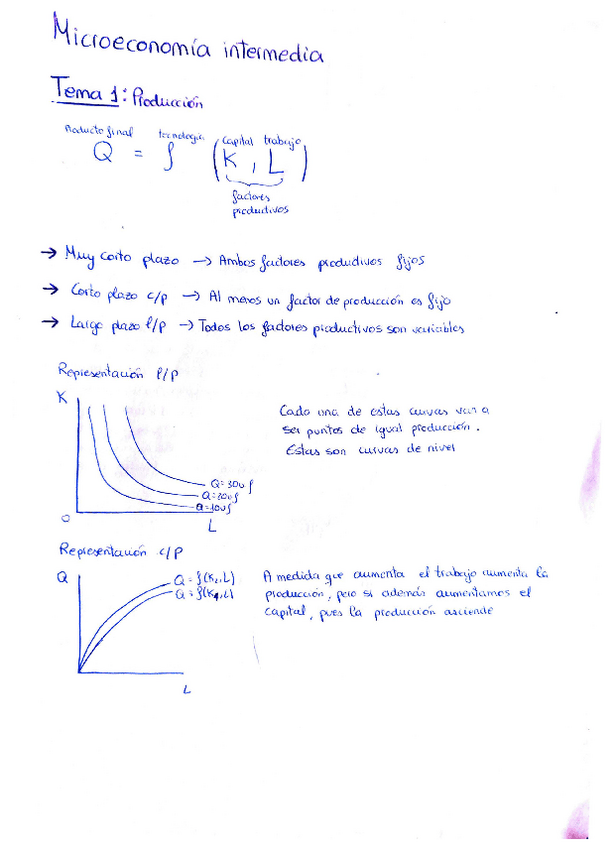 Microeconomía intermedia
Tema 1: Producción
Producto final tecnología capital trabajo
Q = f (K, L)
factores
productivos
→ Muy corto plazo → Ambos factores productivos fijos
→ Corto plazo c/p → Al menos un factor de producción es fijo
→ Largo plazo l/p → Todos los factores productivos son variables
Representación l/p
K
Cada una de estas curvas van a
ser puntos de igual producción.
Estas son curvas de nivel
Q=30uf
Q=20uf
Q=10uf
O
L
Representación c/p
Q
Q = f(K₂,L)
Q = f(K₁,L)
A medida que aumenta el trabajo aumenta la
producción, pero si además aumentamos el
capital, pues la producción asciende
L